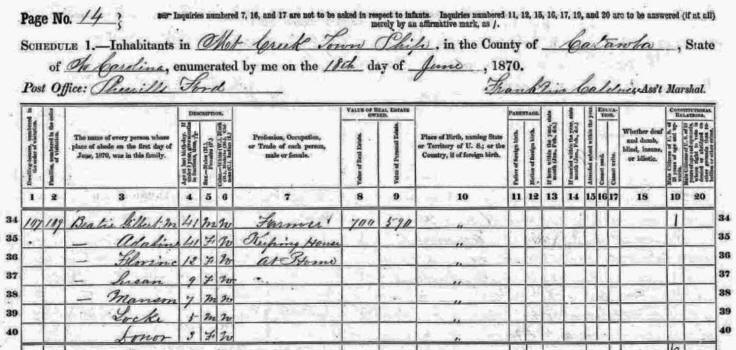 Page No. 14
Inquiries numbered 7, 16, and 17 are not to be asked in respect to infants. Inquiries numbered 11, 12, 15, 16, 17, 19, and 20 are to be answered (if at all)
merely by an affirmative mark, as /.
SCHEDULE 1.—Inhabitants in Mt Creek Town Ship, in the County of Catawba, State
of N Carolina, enumerated by me on the 18th day of June, 1870.
Post Office: Sherrills Ford
Franklin Ass't Marshal.
Dwelling-houses, numbered in the order of visitation.
Families, numbered in the order of visitation.
The name of every person whose place of abode on the first day of June, 1870, was in this family.
DESCRIPTION.
Profession, Occupation, or Trade of each person, male or female.
VALUE OF REAL ESTATE OWNED.
Value of Real Estate.
Value of Personal Estate.
Place of Birth, naming State or Territory of U. S.; or the Country, if of foreign birth.
PARENTAGE.
Father of foreign birth.
Mother of foreign birth.
EDUCATION.
Cannot read.
Cannot write.
Whether deaf and dumb, blind, insane, or idiotic.
CONSTITUTIONAL RELATIONS.
1 2 3 4 5 6 7 8 9 10 11 12 13 14 15 16 17 18 19 20
34 107 109 Beatie Gilbert M 41 M W Farmer 700 590 " 1 34
35 — Adaline 41 F W Keeping House " 35
36 — Florinc 12 F W At Home " 36
37 — Susan 9 F W " 37
38 — Manson 7 M W " 38
39 Locke 5 M W " 39
40 Donor 3 F W " 40